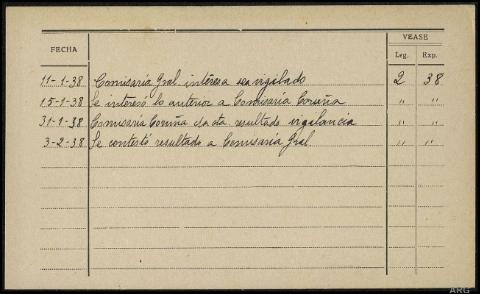 VEASE
FECHA
Leg. Exp.
11-1-38 Comisaría Gral interesa sea vigilado 2 38
15-1-38 Se interesó lo anterior a Comisaría Coruña " "
31-1-38 Comisaría Coruña da cta. resultado vigilancia " "
3-2-38 Se contestó resultado a Comisaría Gral. " "
ARG